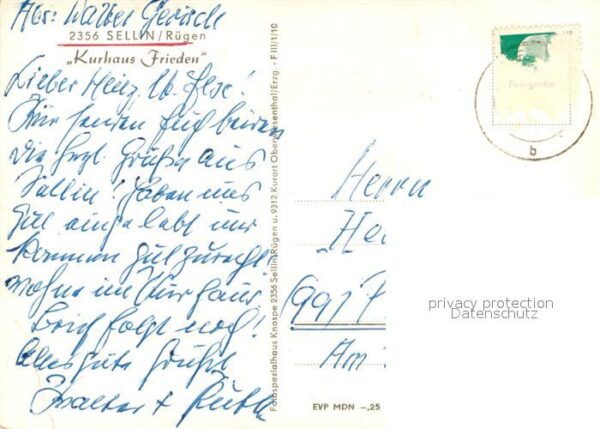 Abs: Walter Gerisch
2356 SELLIN/Rügen
„Kurhaus Frieden"
Lieber Heinz, lb. Ilse!
Wir senden Euch beiden
die herzl. Grüße aus
Sellin! Haben uns
gut eingelebt und
kommen gut zurecht!
Wohne im Kurhaus,
Brief folgt noch!
Alles gute Grüße
Walter + Ruth
Fotospezialhaus Knospe 2356 Sellin/Rügen u. 9312 Kurort Oberwiesenthal/Erzg. · F III/1/10
b
Herrn
He
(991) P
Am
privacy protection
Datenschutz
EVP MDN –,25